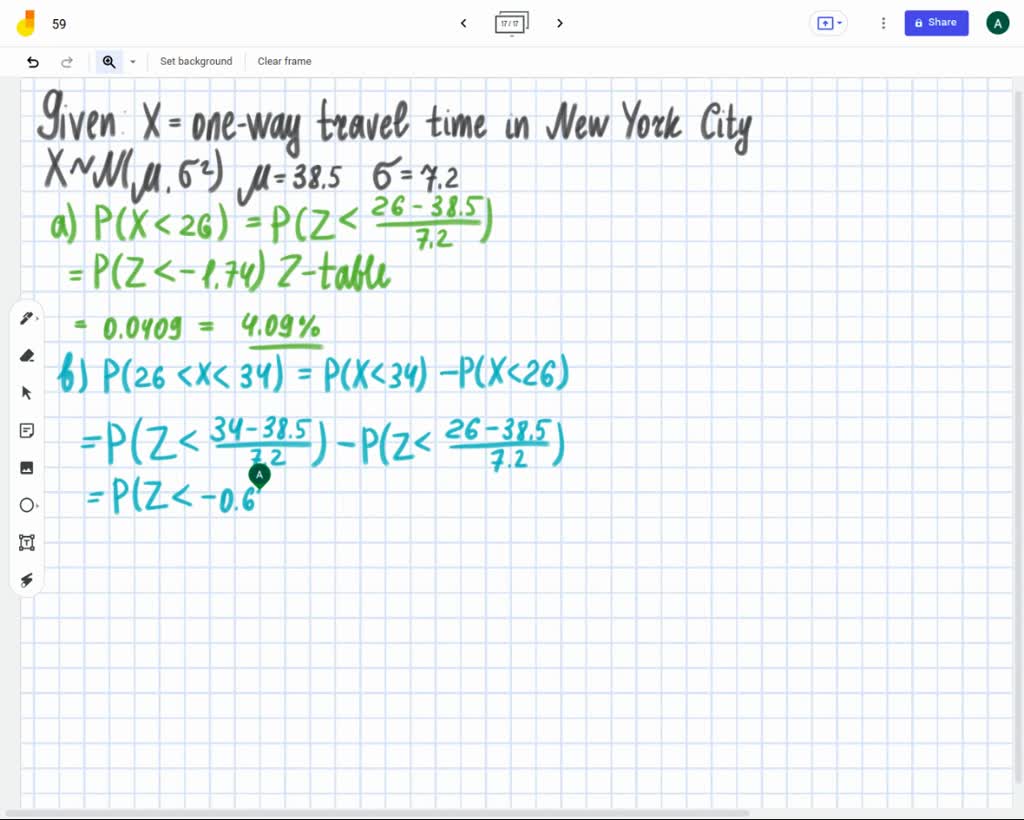 59
17 / 17
Share
A
Set background
Clear frame
Given: X = one-way travel time in New York City
X~N(μ, σ²) μ = 38.5 σ = 7.2
a) P(X < 26) = P(Z < \frac{26 - 38.5}{7.2})
= P(Z < -1.74) Z-table
= 0.0409 = 4.09%
b) P(26 < X < 34) = P(X < 34) - P(X < 26)
= P(Z < \frac{34 - 38.5}{7.2}) - P(Z < \frac{26 - 38.5}{7.2})
A
= P(Z < -0.6